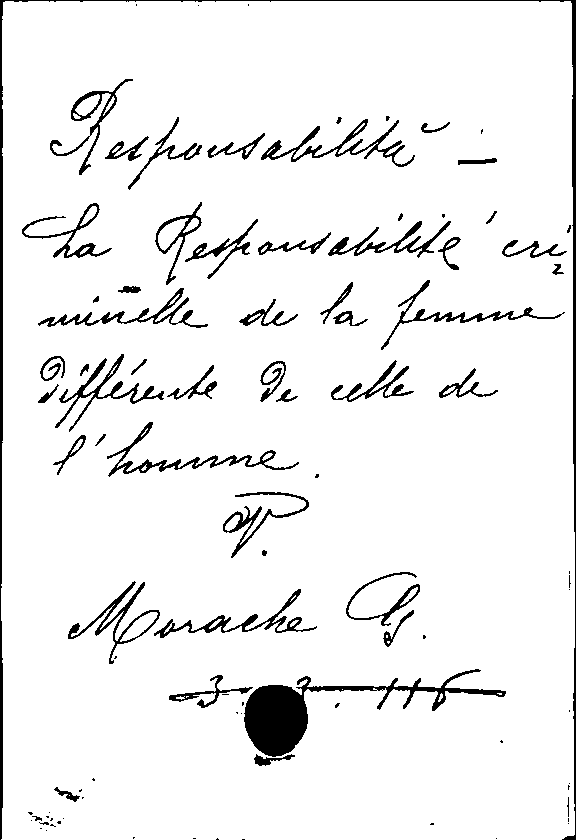 Responsabilità –
La Responsabilité cri
minelle de la femme
différente de celle de
l'homme.
V.
Morache G.
3. 3. 116